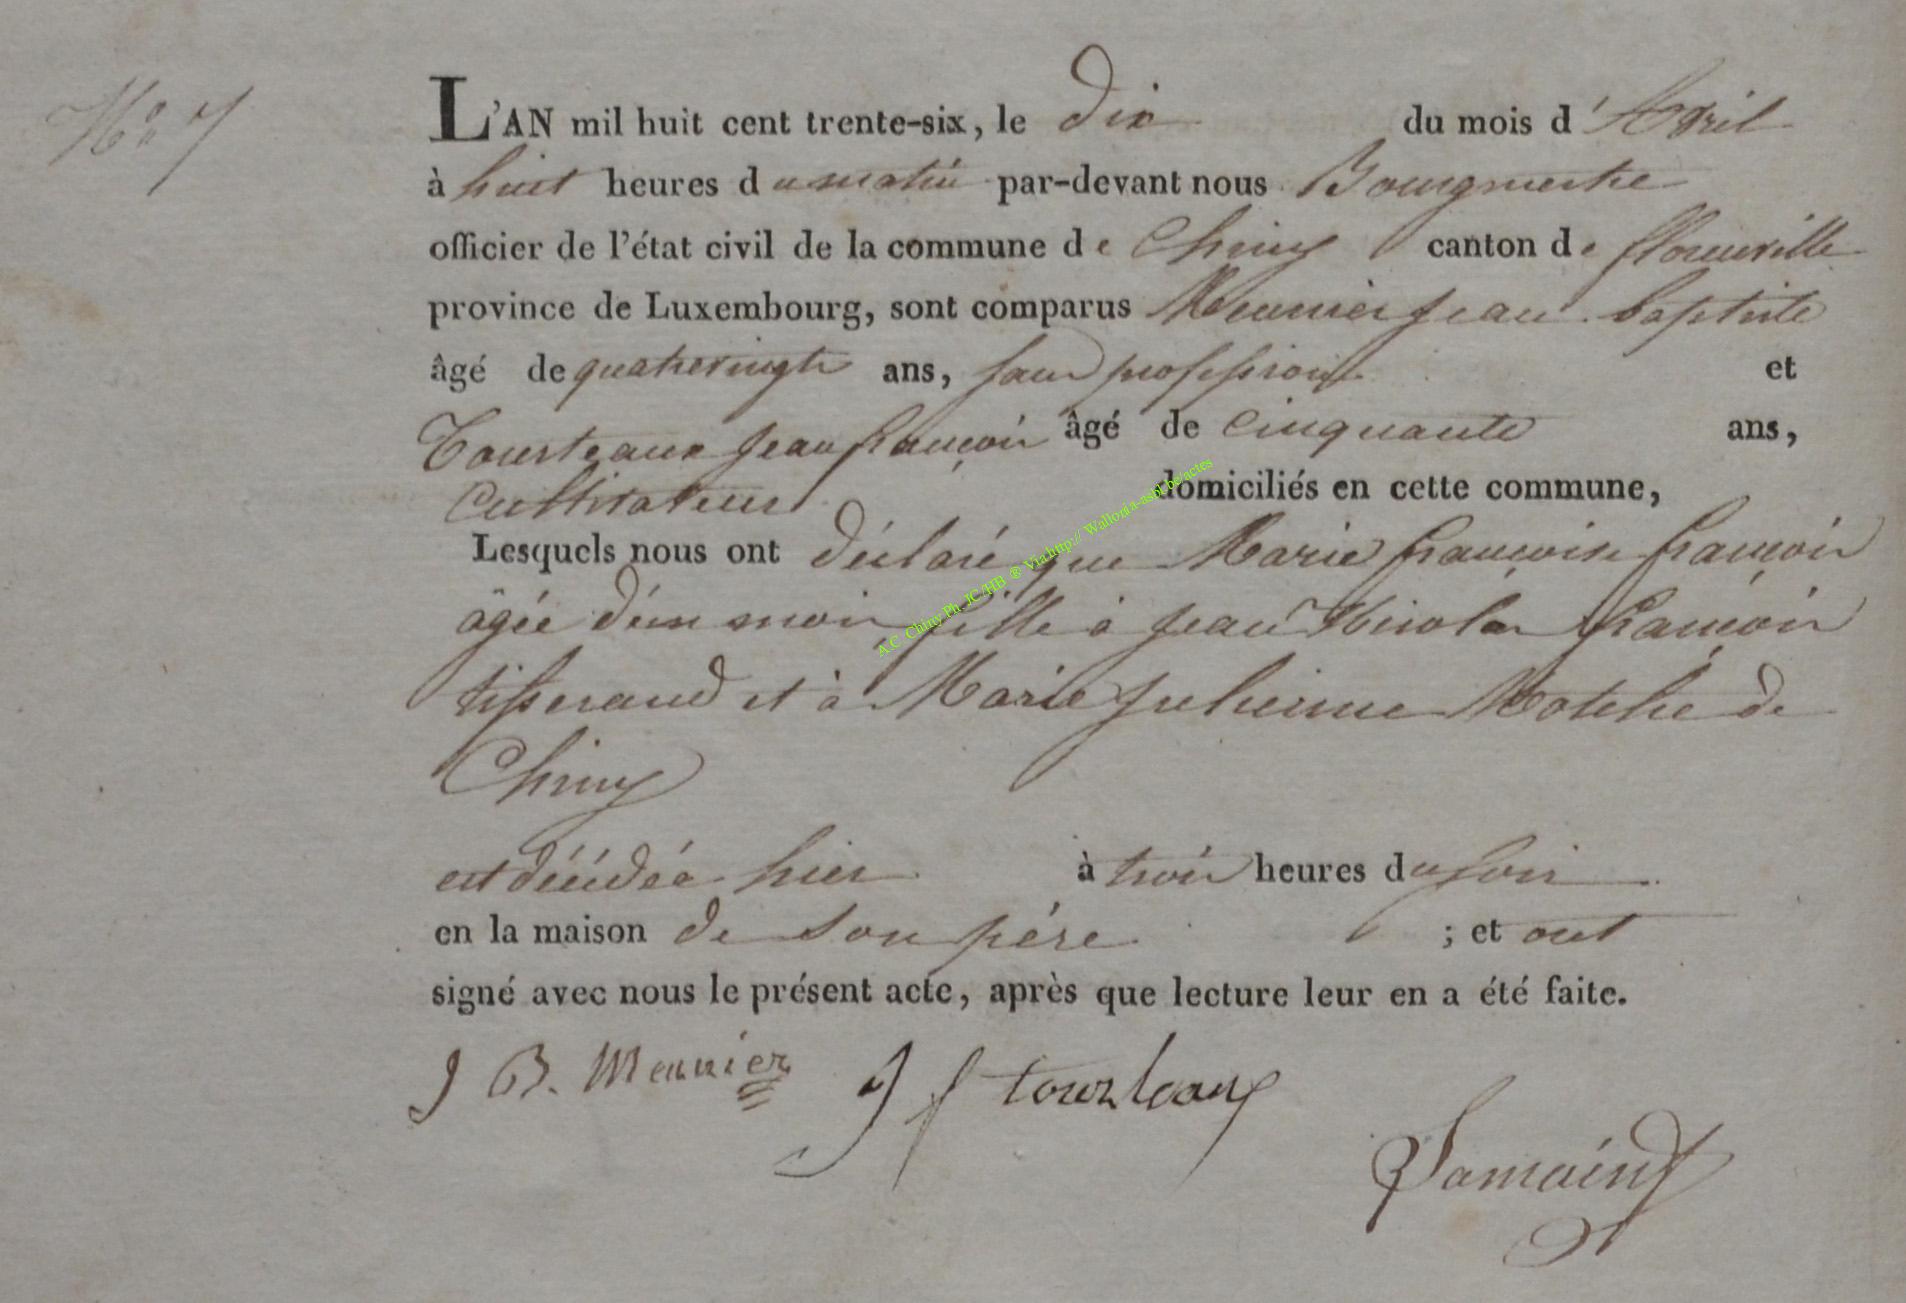 N° 7
L'AN mil huit cent trente-six, le dix du mois d'Avril
à huit heures du matin par-devant nous Bourgmestre
officier de l'état civil de la commune de Chiny canton de florenville
province de Luxembourg, sont comparus Meunier Jean baptiste
âgé de quatrevingts ans, sans profession et
Tourteaux Jean françois âgé de cinquante ans,
Cultivateur domiciliés en cette commune,
Lesquels nous ont déclaré que Marie françoise françois
âgée d'un mois fille à Jean Nicolas françois
tisserand et à Marie Julienne de
Chiny
est décédée hier à trois heures du soir
en la maison de son père ; et ont
signé avec nous le présent acte, après que lecture leur en a été faite.
J B. Meunier J f tourteaux
A.C. Chiny Ph. JC/HB ® Via http:// Wallonia-asbl.be/actes